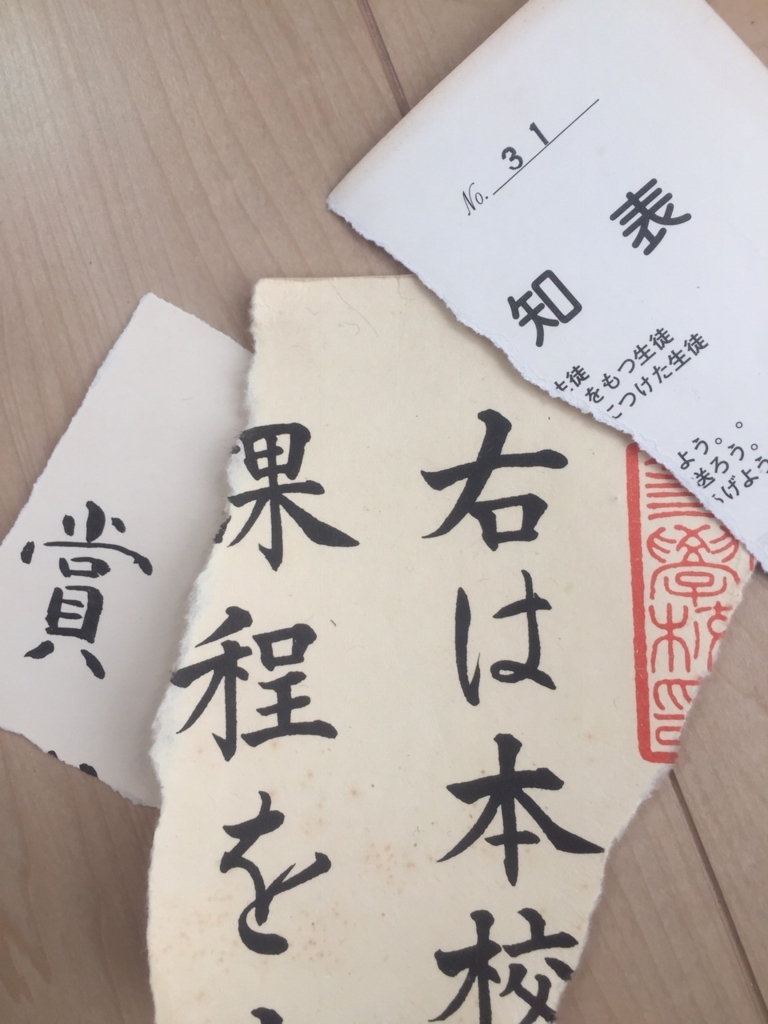 No. 31
知表
徒
をもつ生徒
つけた生徒
よう。
送ろう。
げよう
學校印
右は本校
課程を
賞